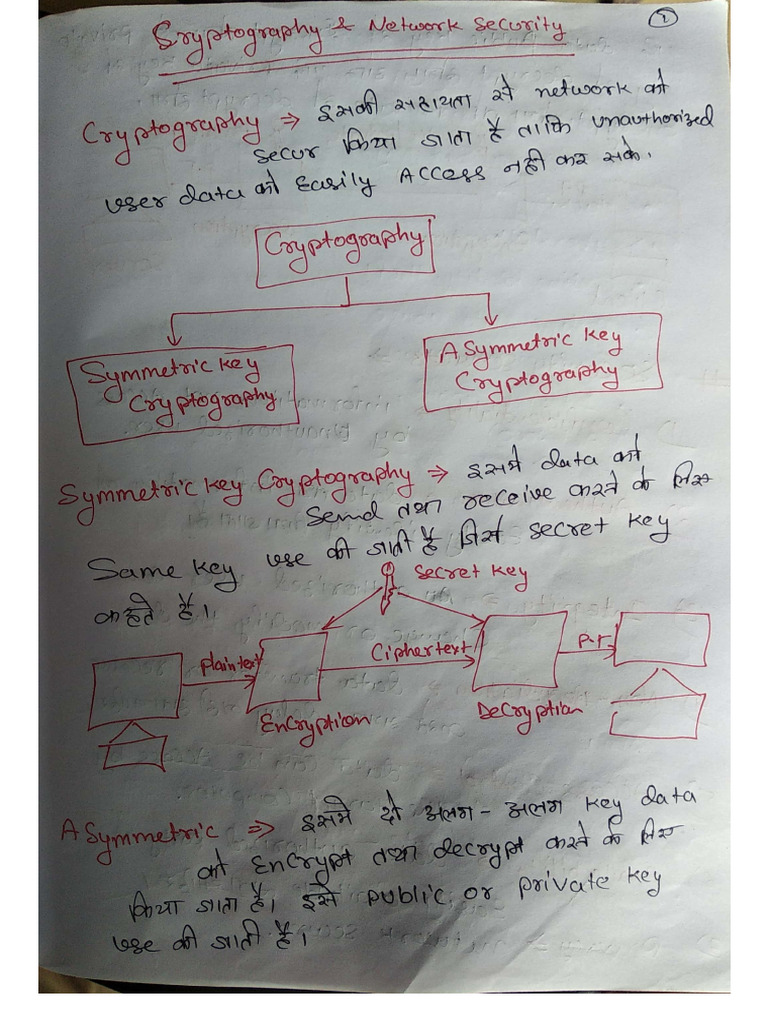 1
Cryptography & Network Security
Cryptography ⇒ इसकी सहायता से network को
secur किया जाता है ताकि unauthorized
user data को Easily Access नही कर सके.
Cryptography
Symmetric key
Cryptography
ASymmetric key
Cryptography
Symmetric key Cryptography ⇒ इसमे data को
Send तथा receive करने के लिए
Same key use की जाती है जिसे secret key
कहते है।
secret key
Plaintext
Ciphertext
P.T
Encryption
Decryption
ASymmetric ⇒ इसमे दो अलग-अलग key data
को Encrypt तथा decrypt करने के लिए
किया जाता है। इसे public or private key
use की जाती है।